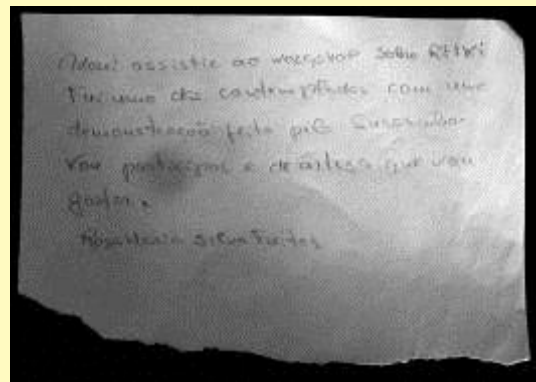 Adorei assistir ao workshop sobre
Fui uma das contempladas com uma
demonstração feita
Vou participar e de antesa que vou
gostar.
Silva Freitas